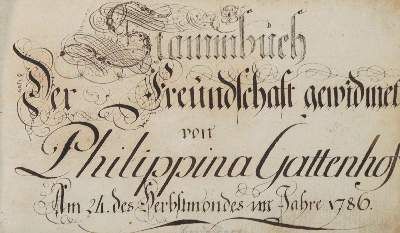 Stammbuch
Der Freundschaft gewidmet
von
Philippina Gattenhof
Am 24. des Herbstmondes im Jahre 1786.